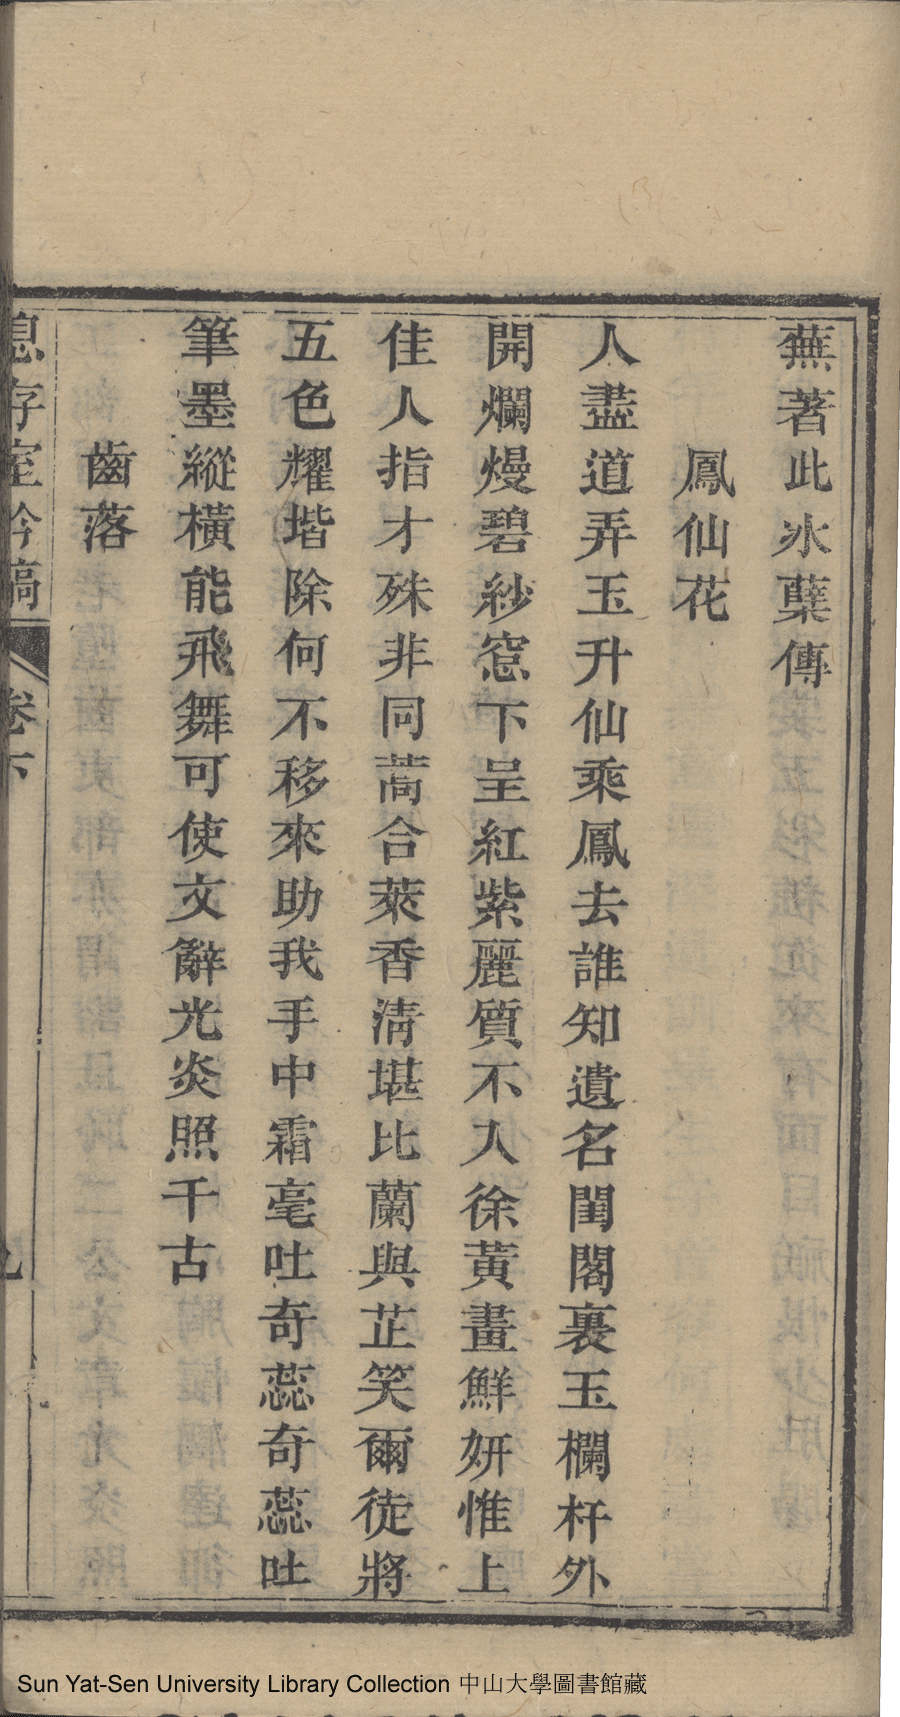 蕪著此氷蘗傳
鳳仙花
人盡道弄玉升仙乘鳳去誰知遺名閨閣裏玉欄杆外
開爛熳碧紗窓下呈紅紫麗質不入徐黃畫鮮妍惟上
佳人指才殊非同蒿合萊香淸堪比蘭與芷笑爾徒將
五色耀堦除何不移來助我手中霜毫吐奇蕊奇蕊吐
筆墨縱橫能飛舞可使文辭光炎照千古
齒落
息存室吟稿 卷下
Sun Yat-Sen University Library Collection 中山大學圖書館藏